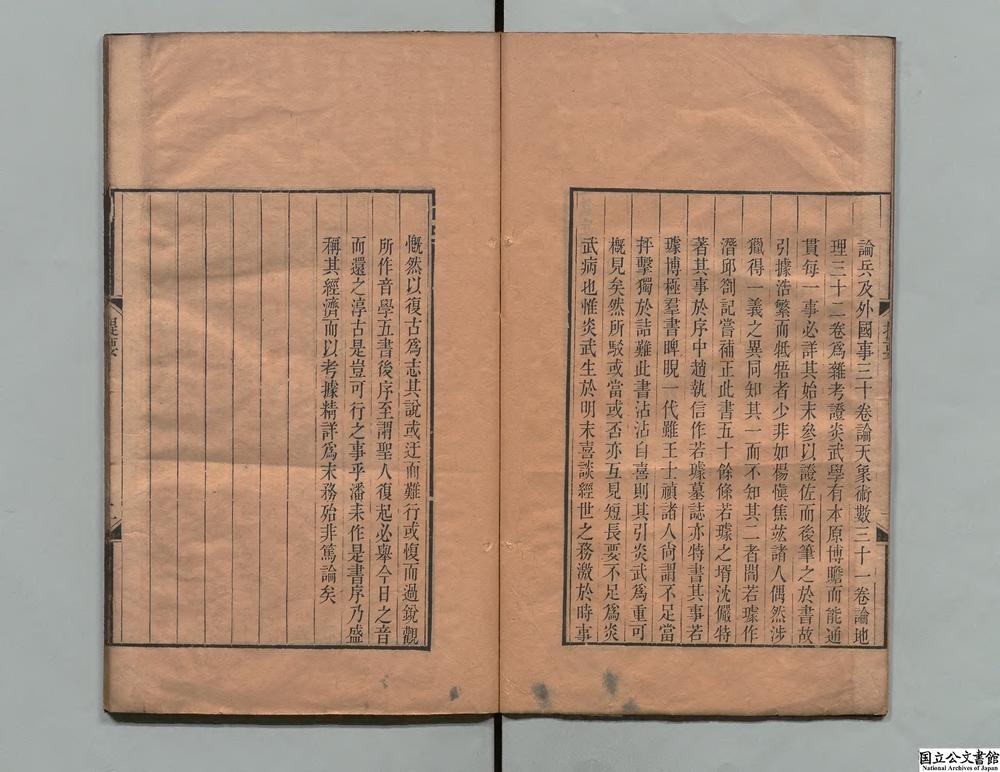 論兵及外國事三十卷論天象術數三十一卷論地
理三十二卷爲雜考證炎武學有本原博贍而能通
貫每一事必詳其始末參以證佐而後筆之於書故
引據浩繁而牴牾者少非如楊愼焦竑諸人偶然涉
獵得一義之異同知其一而不知其二者閻若璩作
潛邱劄記嘗補正此書五十餘條若璩之壻沈儼特
著其事於序中趙執信作若璩墓誌亦特書其事若
璩博極羣書睥睨一代雖王士禎諸人尙謂不足當
抨擊獨於詰難此書沾沾自喜則其引炎武爲重可
槪見矣然所駁或當或否亦互見短長要不足爲炎
武病也惟炎武生於明末喜談經世之務激於時事
慨然以復古爲志其說或迂而難行或愎而過銳觀
所作音學五書後序至謂聖人復起必舉今日之音
而還之淳古是豈可行之事乎潘耒作是書序乃盛
稱其經濟而以考據精詳爲末務殆非篤論矣
提要
国立公文書館
National Archives of Japan